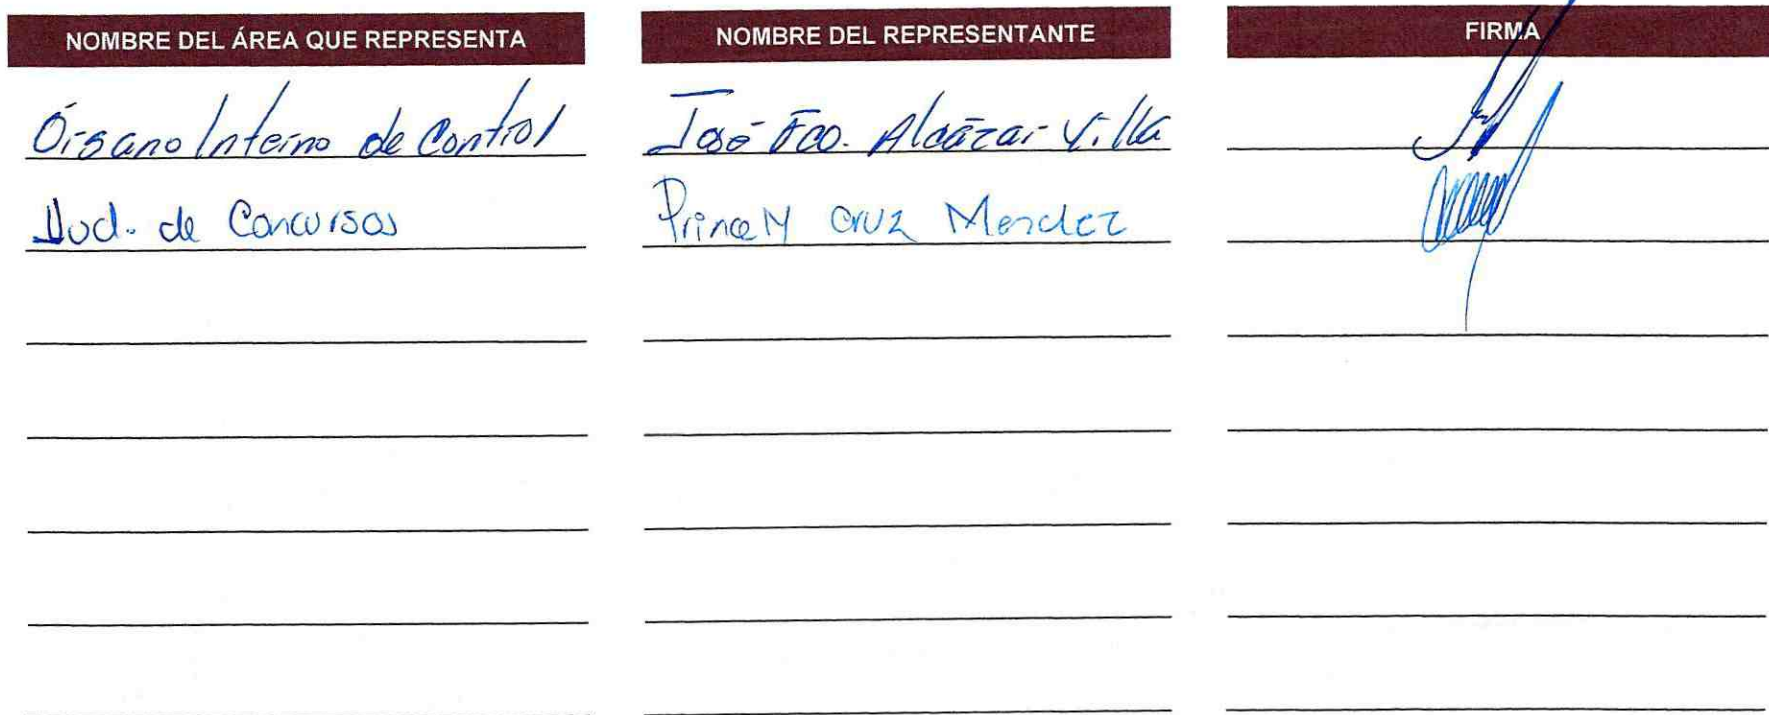 NOMBRE DEL ÁREA QUE REPRESENTA NOMBRE DEL REPRESENTANTE FIRMA
Órgano Interno de Control José Fco. Alcázar Villa
Jud. de Concursos Princely Cruz Mendez